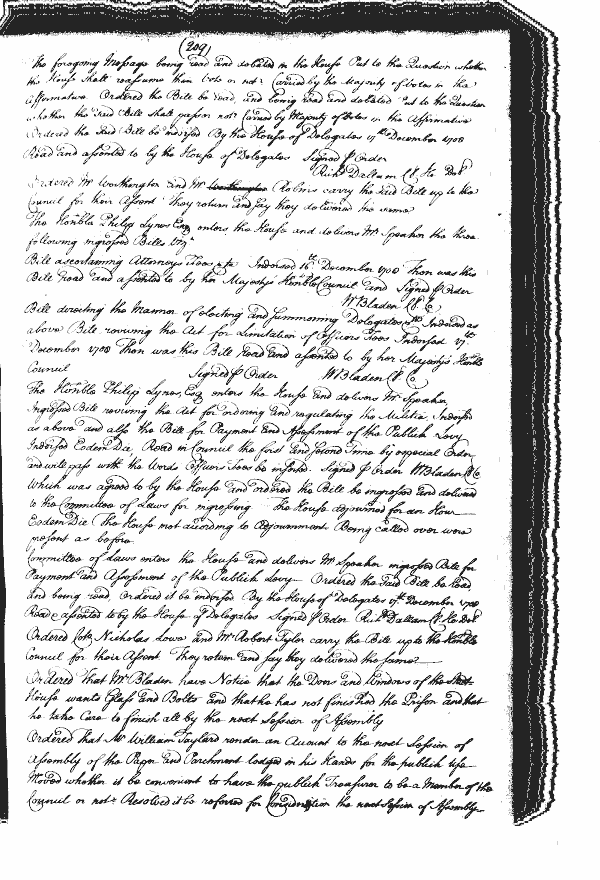 (209)
The foregoing Message being read and debated in the House Put to the Question whether
the House Shall reassume their Vote or not? Carried by the Majority of Votes in the
Affirmative Ordered the Bill be read, and being read and debated Put to the Question
whether the said Bill shall pass or not? Carried by Majority of Votes in the Affirmative
Ordered the said Bill be indorsed By the House of Delegates 17th December 1708
Read and assented to by the House of Delegates Signed p Order
Richd Dallam Cl. Ho. Del
Ordered Mr Worthington and Mr Robins carry the said Bill up to the
Council for their Assent They return and say they delivered the same
The Honble Philip Lynes Esq enters the House and delivers Mr Speaker the three
following ingrossed Bills Vizt
Bill ascertaining Attorneys Fees &c Indorsed 16th December 1708 Then was this
Bill Read and assented to by her Majestys Honble Council and Signed p Order
W Bladen Cl. C
Bill directing the Manner of electing and summoning Delegates &c Indorsed as
above Bill reviving the Act for Limitation of Officers Fees Indorsed 17th
December 1708 Then was this Bill Read and assented to by her Majestys Honble
Council Signed p Order W Bladen Cl. C
The Honble Philip Lynes, Esq enters the House and delivers Mr Speaker
Ingrossed Bill reviving the Act for ordering and regulating the Militia, Indorsed
as above and also the Bill for Payment and Assessment of the Publick Levy
Indorsed Eodem Die Read in Council the first and second Time by especial Order
and will pass with the Words Officers Fees be inserted. Signed p Order W Bladen Cl C
Which was agreed to by the House and ordered the Bill be ingrossed and delivered
to the Committee of Laws for ingrossing The House adjourned for an Hour
Eodem Die The House met according to Adjournment Being called over were
present as before
Committee of Laws enters the House and delivers Mr Speaker ingrossed Bill for
Payment and Assessment of the Publick Levy Ordered the said Bill be read,
and being read, Ordered it be indorsed By the House of Delegates 17th December 1708
Read & assented to by the House of Delegates Signed p Order Richd Dallam Cl. Ho. Del
Ordered Colo Nicholas Lowe and Mr Robert Tyler carry the Bill up to the Honble
Council for their Assent They return and say they delivered the same
Ordered that Mr Bladen have Notice that the Doors and Windows of the
House wants Glass and Bolts and that he has not finished the Prison and that
he take Care to finish all by the next Session of Assembly
Ordered that Mr William Taylard render an Account to the next Session of
Assembly of the Paper and Parchment lodged in his Hands for the publick Use
Moved whether it be convenient to have the publick Treasurer to be a Member of the
Council or not? Resolved it be referred for Consideration the next Session of Assembly